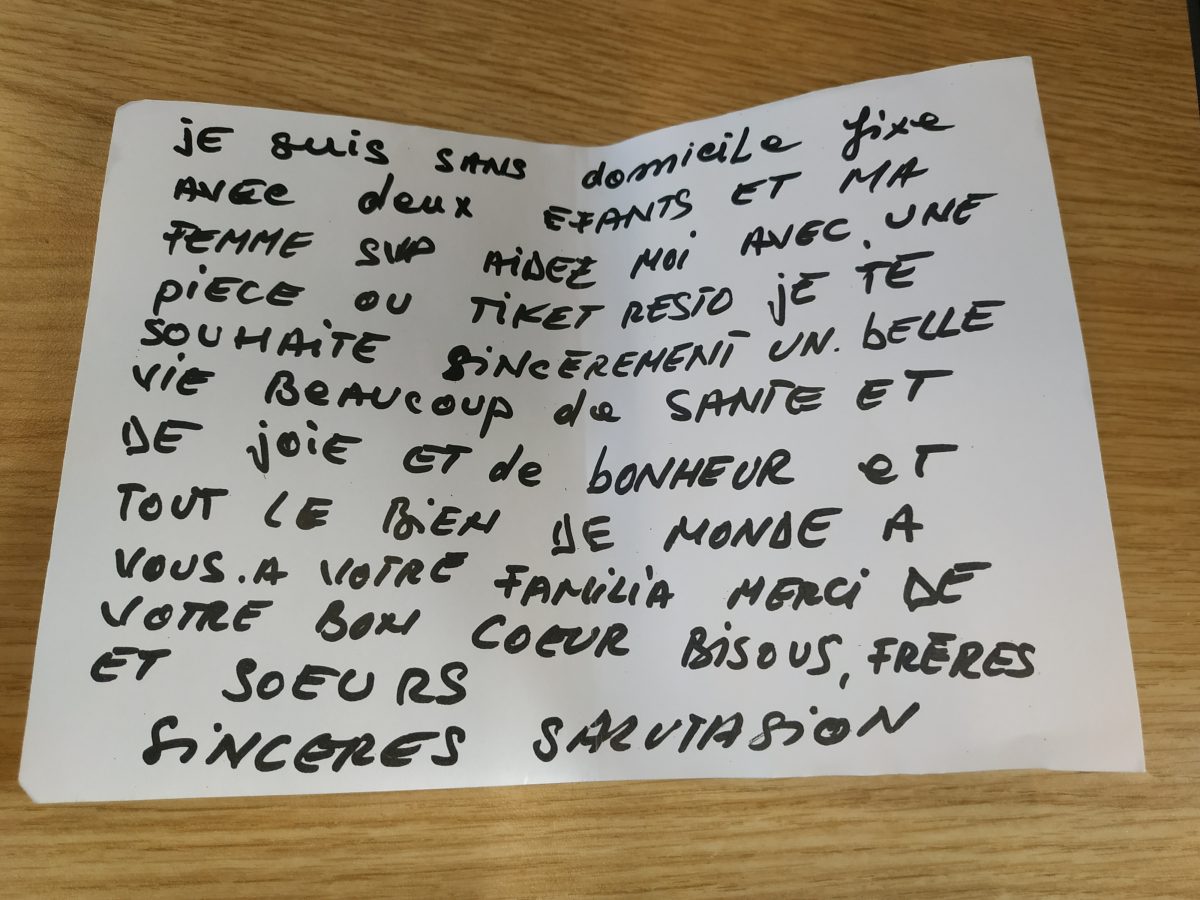 jE suis SANS domiciLe fixe
AVEC deux EFANTS ET MA
FEMME SVP AiDEZ MOi AVEC UNE
PiECE OU TiKET RESTO jE TE
SOUHAiTE SiNCEREMENT UN. bELLE
ViE BEAUCOUP de SANTE ET
DE joiE ET de bONHEUR eT
TOUT LE BiEN DE MONDE A
VOUS. A VOTRE FAMiLiA MERCi DE
VOTRE BON COEUR BiSOUS, FRERES
ET SOEURS
SiNCERES SALUTASiON